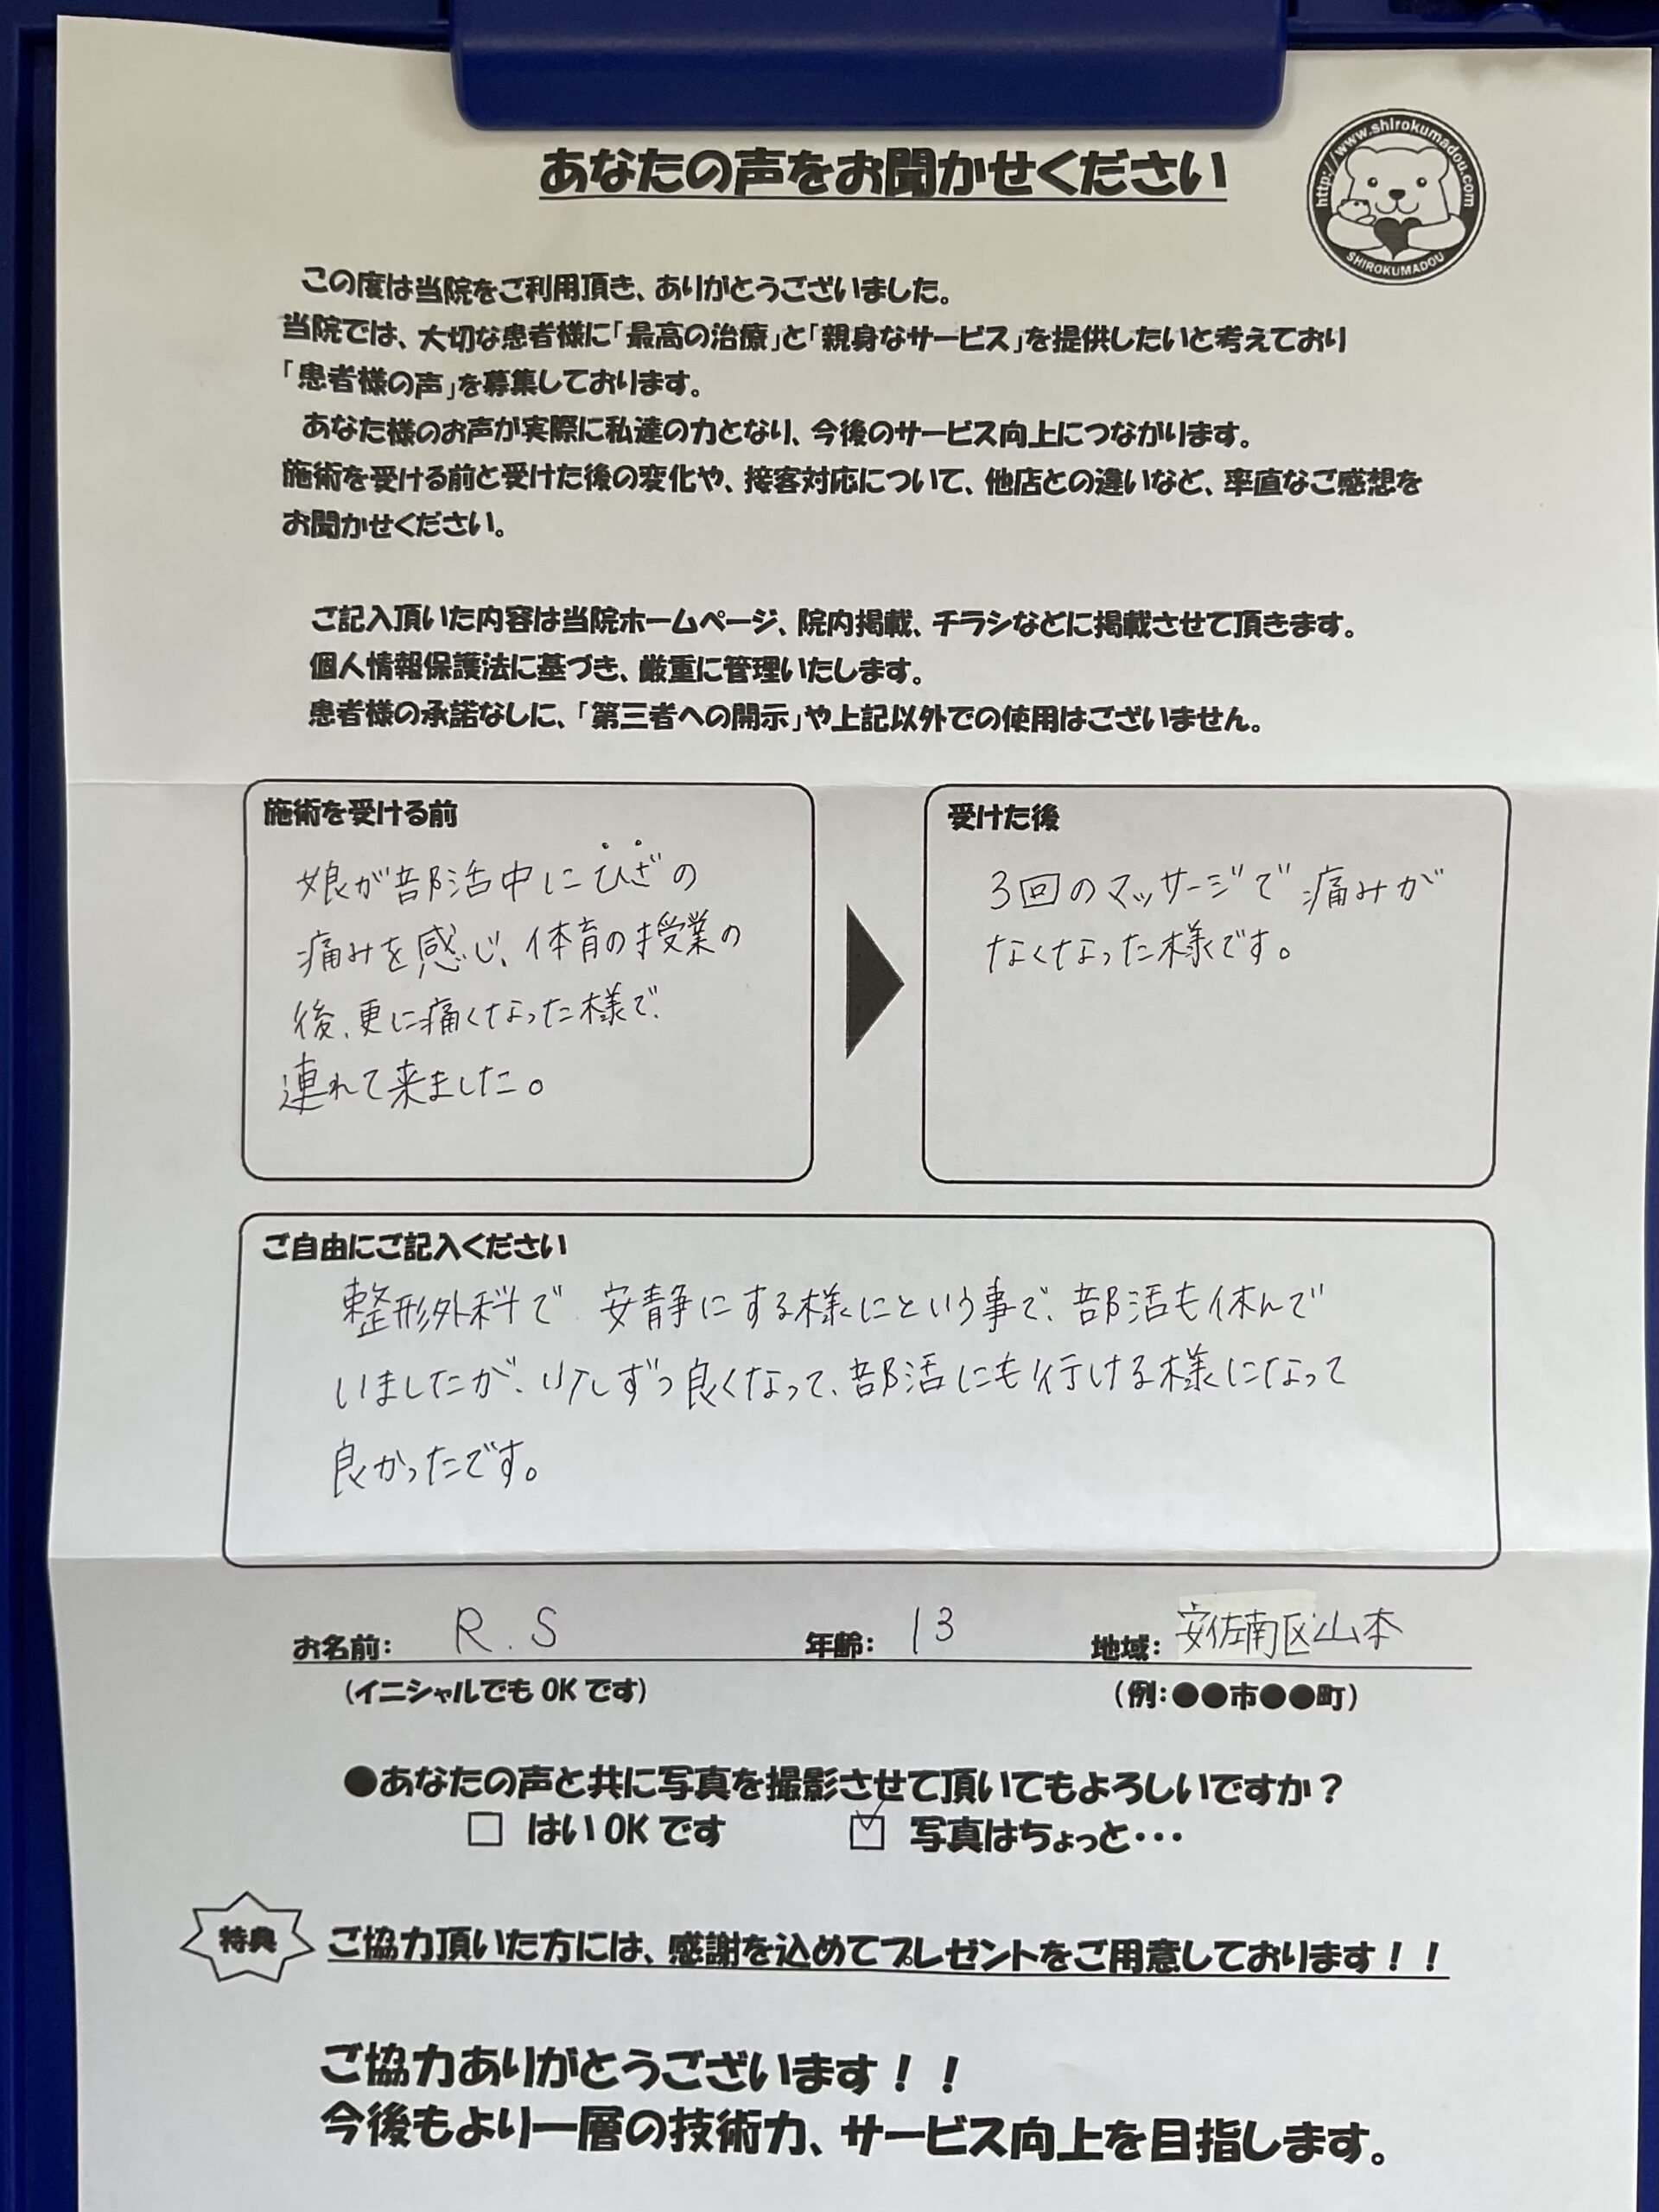 あなたの声をお聞かせください
http://www.shirokumadou.com
SHIROKUMADOU
この度は当院をご利用頂き、ありがとうございました。
当院では、大切な患者様に「最高の治療」と「親身なサービス」を提供したいと考えており
「患者様の声」を募集しております。
あなた様のお声が実際に私達の力となり、今後のサービス向上につながります。
施術を受ける前と受けた後の変化や、接客対応について、他店との違いなど、率直なご感想を
お聞かせください。
ご記入頂いた内容は当院ホームページ、院内掲載、チラシなどに掲載させて頂きます。
個人情報保護法に基づき、厳重に管理いたします。
患者様の承諾なしに、「第三者への開示」や上記以外での使用はございません。
施術を受ける前
娘が部活中にひざの
痛みを感じ、体育の授業の
後、更に痛くなった様で、
連れて来ました。
受けた後
3回のマッサージで痛みが
なくなった様です。
ご自由にご記入ください
整形外科で安静にする様にという事で、部活も休んで
いましたが、少しずつ良くなって、部活にも行ける様になって
良かったです。
お名前: R.S 年齢: 13 地域: 安佐南区山本
(イニシャルでも OK です) (例:●●市●●町)
●あなたの声と共に写真を撮影させて頂いてもよろしいですか?
□ はい OK です ☑ 写真はちょっと・・・
特典 ご協力頂いた方には、感謝を込めてプレゼントをご用意しております!!
ご協力ありがとうございます!!
今後もより一層の技術力、サービス向上を目指します。